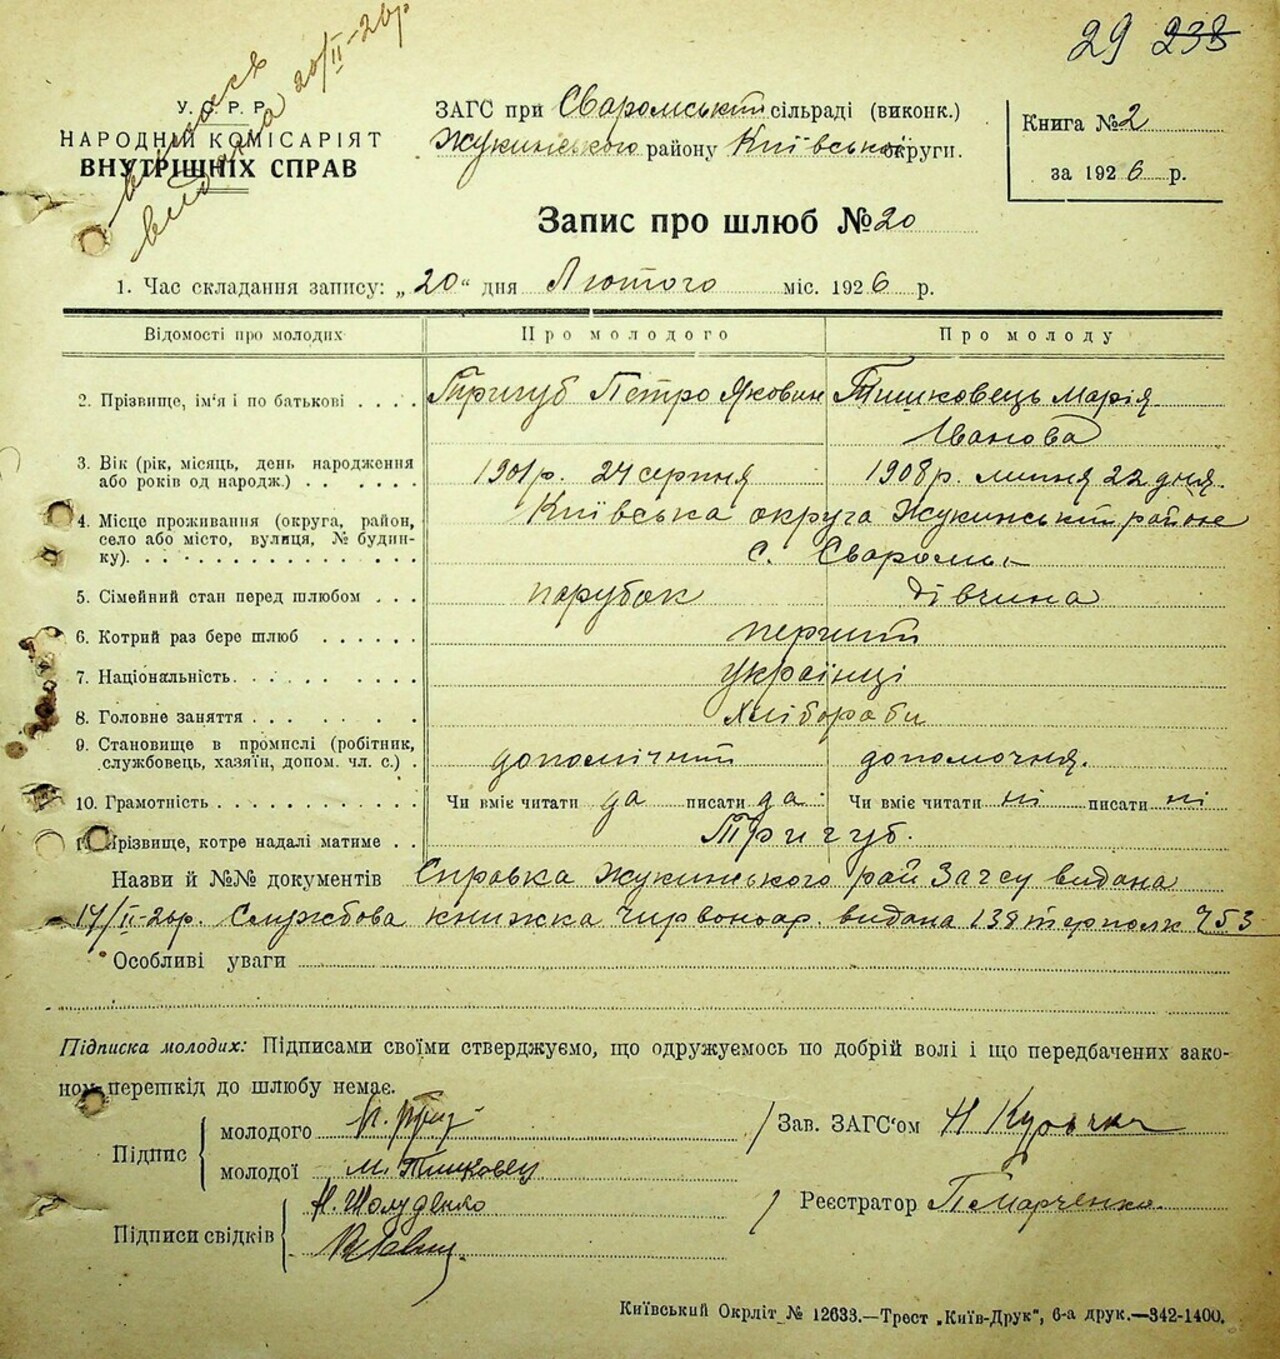 29 238
видана 20/II-26р
У. С. Р. Р.
НАРОДНІЙ КОМІСАРІЯТ
ВНУТРІШНІХ СПРАВ
ЗАГС при Сваромський сільраді (виконк.)
Жукинського району Київської округи.
Книга № 2
за 1926 р.
Запис про шлюб № 20
1. Час складання запису: „20“ дня Лютого міс. 1926 р.
Відомості про молодих Про молодого Про молоду
2. Прізвище, ім'я і по батькові . . . . Тригуб Петро Якович Тишковець Марія
Іванова
3. Вік (рік, місяць, день народження 1901р. 24 серпня 1908р. липня 22 дня.
або років од народж.) . . . . . .
4. Місце проживання (округа, район, Київська округа Жукинський районе
село або місто, вулиця, № будин-
ку). . . . . . . . . . . . . . . с. Сваромь
5. Сімейний стан перед шлюбом . . . парубок дівчина
6. Котрий раз бере шлюб . . . . . . перший
7. Національність. . . . . . . . . . українці
8. Головне заняття . . . . . . . . хлібороби
9. Становище в промислі (робітник,
службовець, хазяїн, допом. чл. с.) . допомічний допомочня.
10. Грамотність . . . . . . . . . . . Чи вміє читати да писати да Чи вміє читати ні писати ні
11. Прізвище, котре надалі матиме . . Тригуб.
Назви й №№ документів Справка Жукинського рай Загсу видана
17/II-26р. Службова книжка чирвоноар. видана 138 терполк Ч 53
Особливі уваги
Підписка молодих: Підписами своїми стверджуємо, що одружуємось по добрій волі і що передбачених зако-
ном перешкід до шлюбу немає.
Підпис
молодого П. Триг
молодої М. Тишковец
Зав. ЗАГС'ом Н Курочка
Підписи свідків
Н. Шолуденко
Реєстратор П Марченко.
Київський Окрліт № 12633.—Трест „Київ-Друк“, 6-а друк.—342-1400.